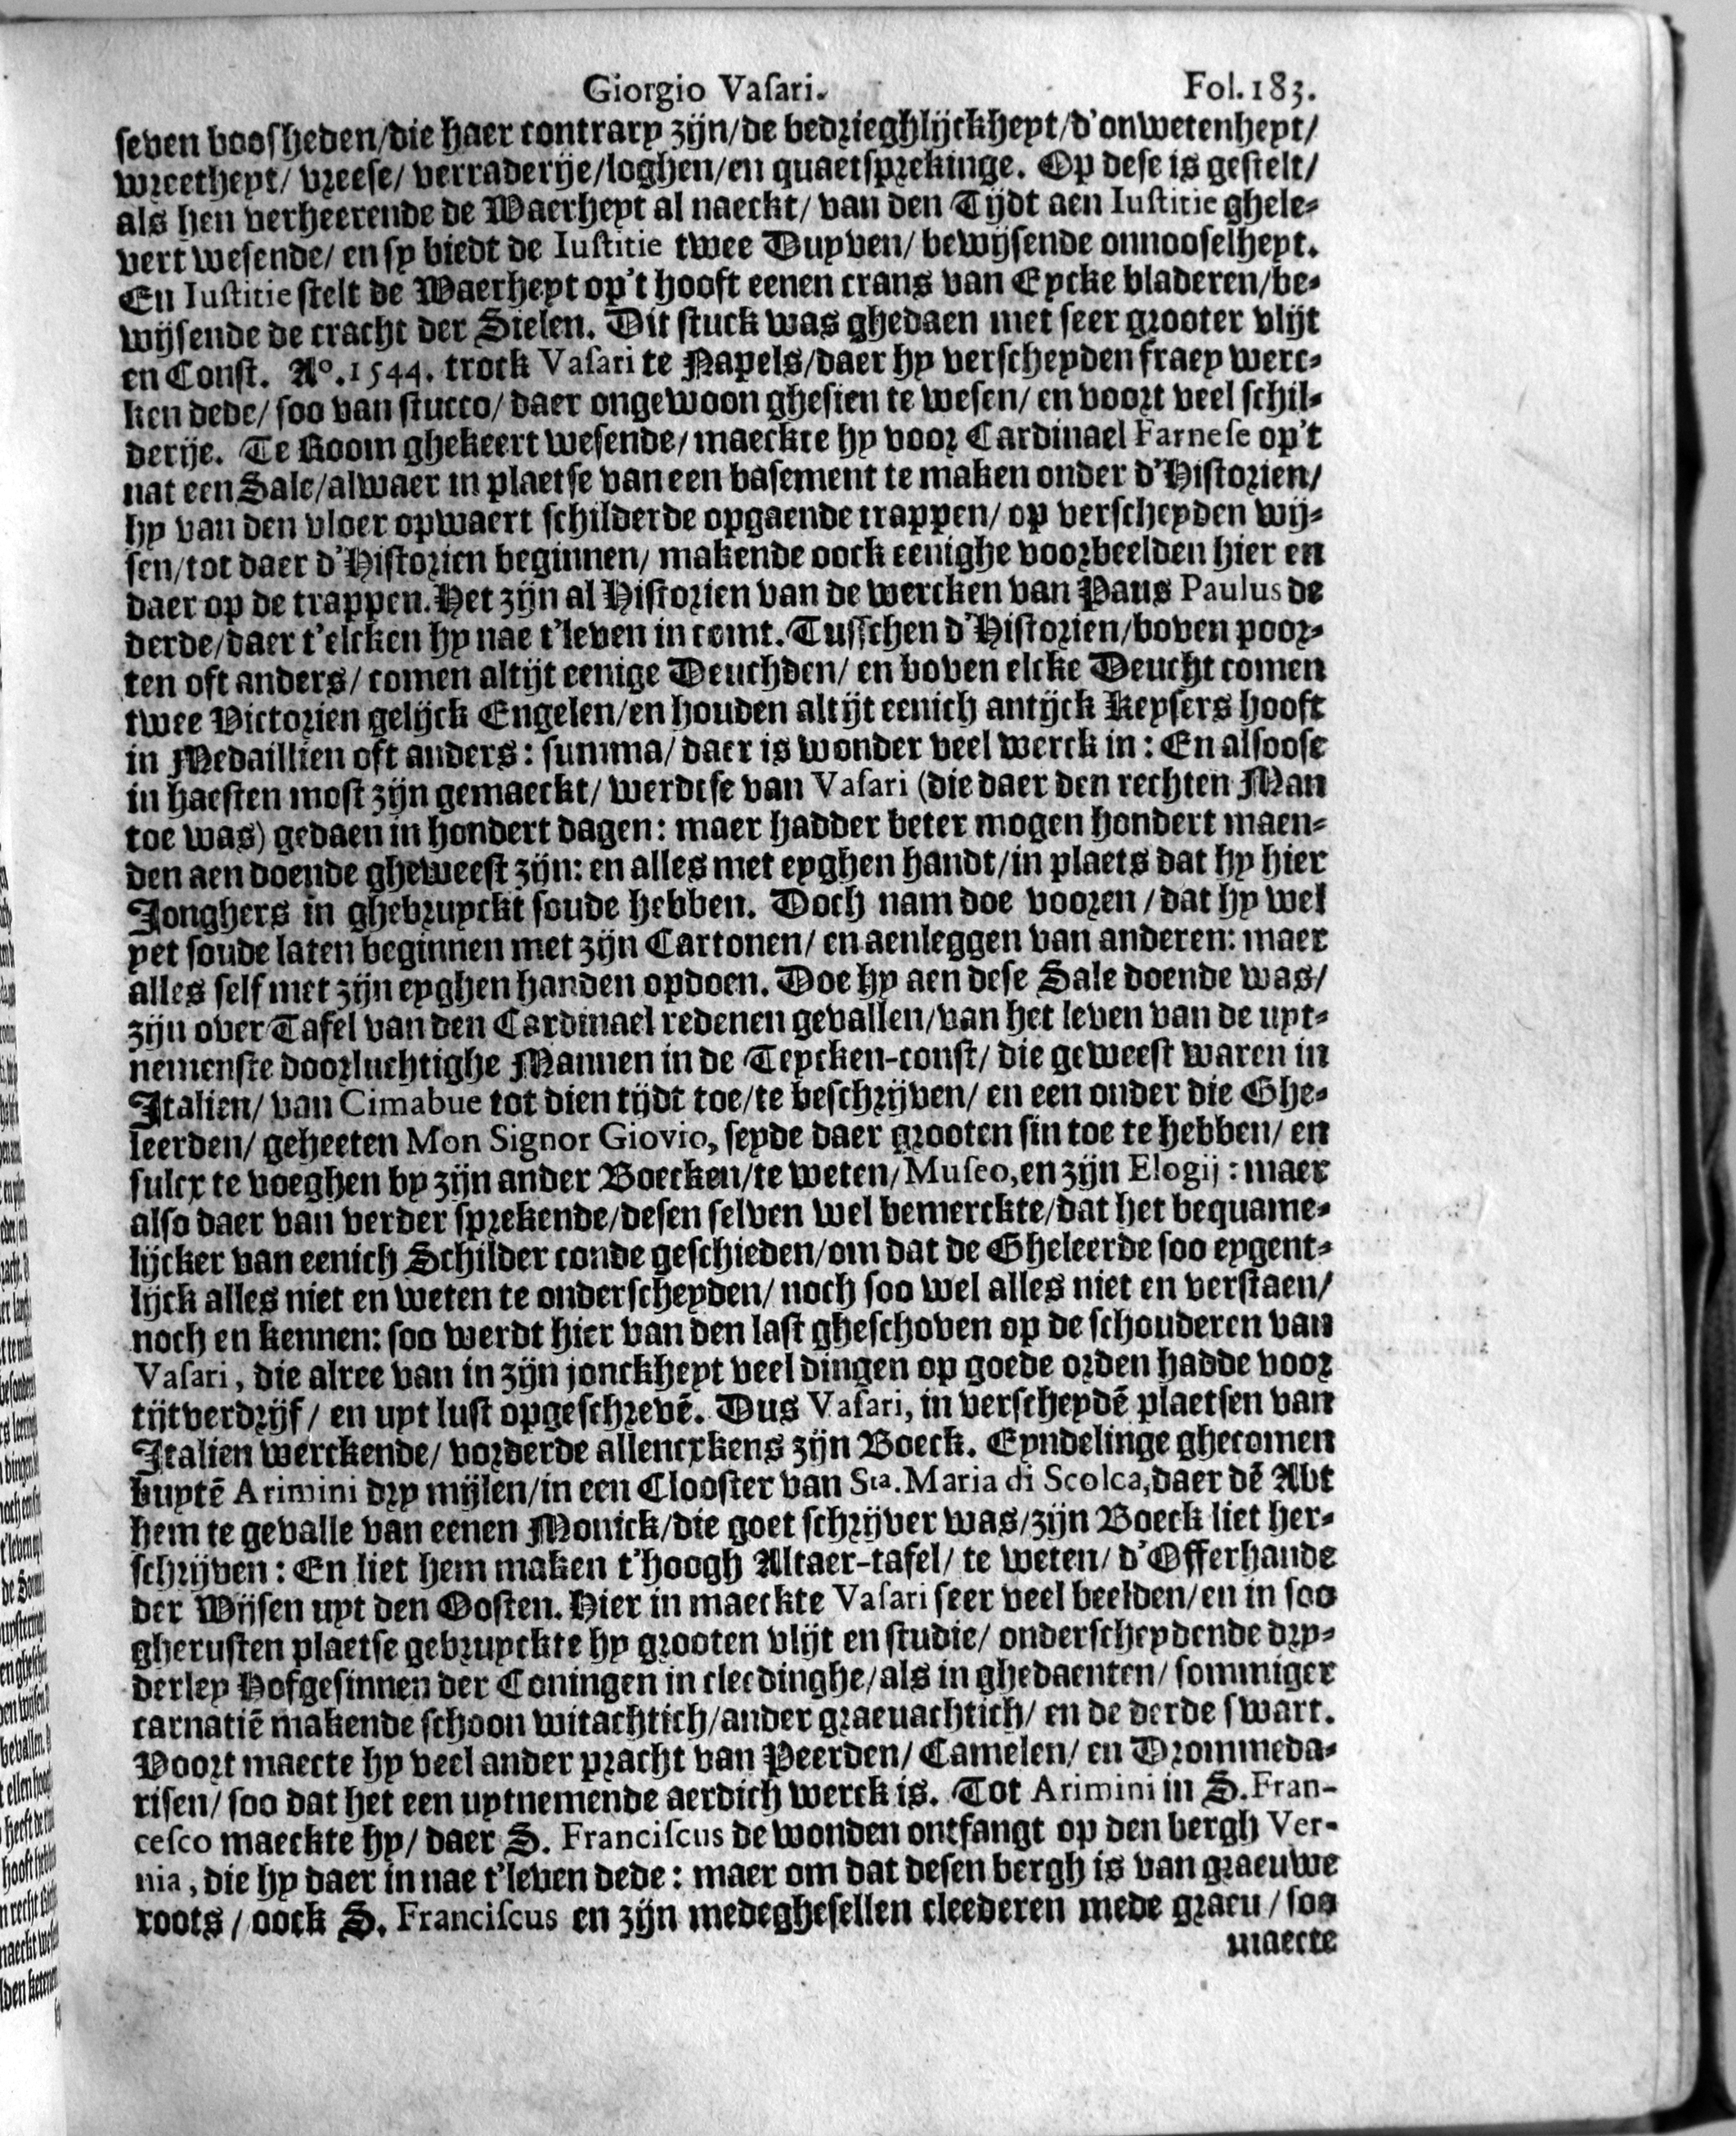 Giorgio Vaſari. Fol. 183.
seven boosheden/die haer contrary zijn/de bedrieghlijckheyt/d'onwetenheyt/
wreetheyt/ vreese/ verraderije/loghen/en quaetsprekinge. Op dese is gestelt/
als hen verheerende de Waerheyt al naeckt/ van den Tijdt aen Iuſtitie ghele-
vert wesende/ en sy biedt de Iuſtitie twee Duyven/ bewijsende onnooselheyt.
En Iuſtitie stelt de Waerheyt op't hooft eenen crans van Eycke bladeren/be-
wijsende de cracht der Sielen. Dit stuck was ghedaen met seer grooter vlijt
en Const. Aº. 1544. trock Vaſari te Napels/daer hy verscheyden fraey werc-
ken dede/ soo van stucco/ daer ongewoon ghesien te wesen/ en voort veel schil-
derije. Te Room ghekeert wesende/ maeckte hy voor Cardinael Farneſe op't
nat een Sale/alwaer in plaetse van een basement te maken onder d'Historien/
hy van den vloer opwaert schilderde opgaende trappen/ op verscheyden wij-
sen/tot daer d'Historien beginnen/ makende oock eenighe voorbeelden hier en
daer op de trappen. Het zijn al Historien van de wercken van Paus Paulus de
derde/daer t'elcken hy nae t'leven in comt. Tusschen d'Historien/boven poor-
ten oft anders/ comen altijt eenige Deuchden/ en boven elcke Deucht comen
twee Victorien gelijck Engelen/en houden altijt eenich antijck Keysers hooft
in Medaillien oft anders: summa/ daer is wonder veel werck in: En alsoose
in haesten most zijn gemaeckt/ werdtse van Vaſari (die daer den rechten Man
toe was) gedaen in hondert dagen: maer hadder beter mogen hondert maen-
den aen doende gheweest zijn: en alles met eyghen handt/in plaets dat hy hier
Jonghers in ghebruyckt soude hebben. Doch nam doe vooren/dat hy wel
yet soude laten beginnen met zijn Cartonen/ en aenleggen van anderen: maer
alles self met zijn eyghen handen opdoen. Doe hy aen dese Sale doende was/
zijn over Tafel van den Cardinael redenen gevallen/van het leven van de uyt-
nemenste doorluchtighe Mannen in de Teycken-const/ die geweest waren in
Italien/ van Cimabue tot dien tijdt toe/te beschrijven/ en een onder die Ghe-
leerden/ geheeten Mon Signor Giovio, seyde daer grooten sin toe te hebben/ en
sulcx te voeghen by zijn ander Boecken/te weten/Muſeo,en zijn Elogij: maer
also daer van verder sprekende/desen selven wel bemerckte/dat het bequame-
lijcker van eenich Schilder conde geschieden/om dat de Gheleerde soo eygent-
lijck alles niet en weten te onderscheyden/ noch soo wel alles niet en verstaen/
noch en kennen: soo werdt hier van den last gheschoven op de schouderen van
Vaſari, die alree van in zijn jonckheyt veel dingen op goede orden hadde voor
tijtverdrijf/ en uyt lust opgeschrevē. Dus Vaſari, in verscheydē plaetsen van
Italien werckende/ vorderde allencxkens zijn Boeck. Eyndelinge ghecomen
buytē Arimini dry mijlen/in een Clooster van Sta. Maria di Scolca,daer dē Abt
hem te gevalle van eenen Monick/die goet schrijver was/zijn Boeck liet her-
schrijven: En liet hem maken t'hoogh Altaer-tafel/ te weten/ d'Offerhande
der Wijsen uyt den Oosten. Hier in maeckte Vaſari seer veel beelden/en in soo
gherusten plaetse gebruyckte hy grooten vlijt en studie/ onderscheydende dry-
derley Hofgesinnen der Coningen in cleedinghe/als in ghedaenten/ sommiger
carnatiē makende schoon witachtich/ander graeuachtich/ en de derde swart.
Voort maecte hy veel ander pracht van Peerden/ Camelen/ en Drommeda-
risen/ soo dat het een uytnemende aerdich werck is. Tot Arimini in S. Fran-
ceſco maeckte hy/ daer S. Franciſcus de wonden ontfangt op den bergh Ver-
nia, die hy daer in nae t'leven dede: maer om dat desen bergh is van graeuwe
roots/ oock S. Franciſcus en zijn medeghesellen cleederen mede graeu/soo
maecte